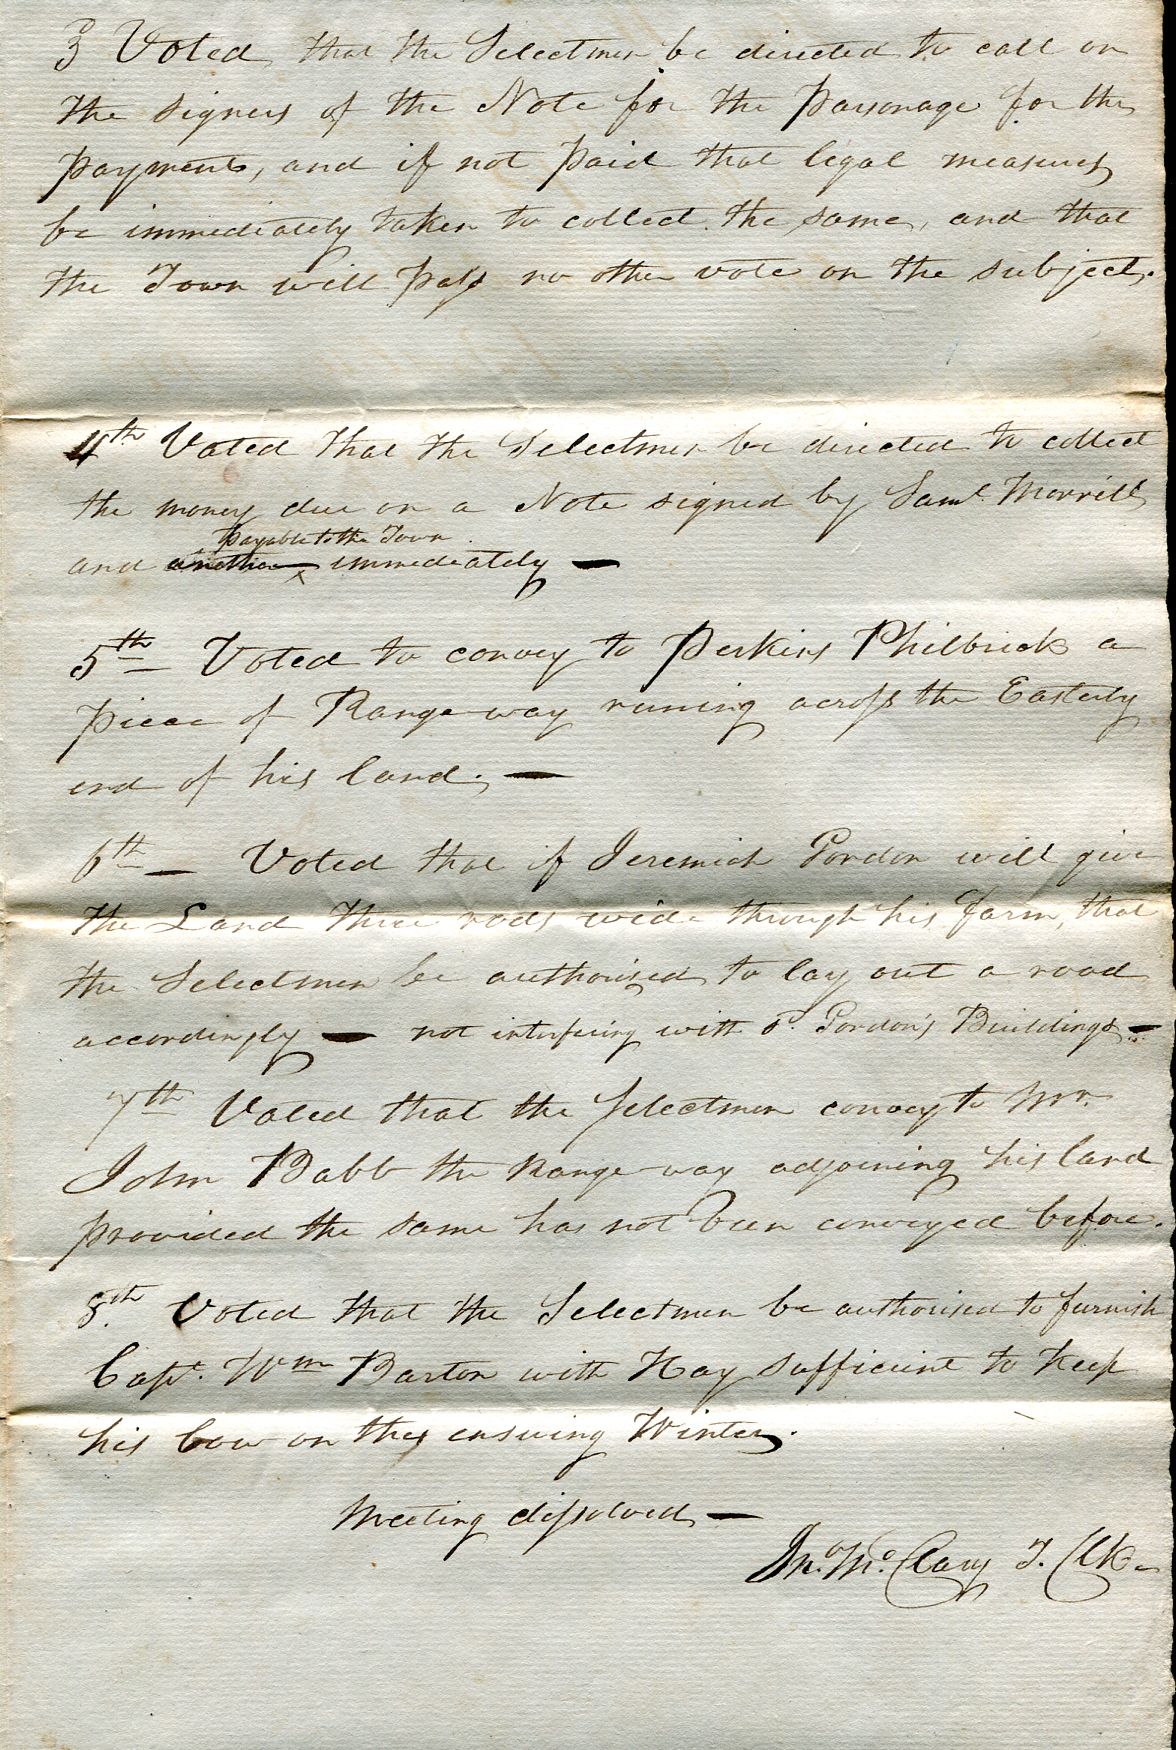 3 Voted that the Selectmen be directed to call on
the signers of the Note for the Parsonage for the
payment, and if not paid that legal measures
be immediately taken to collect the same, and that
the Town will pass no other vote on the subject.
4th Voted that the Selectmen be directed to collect
the money due on a Note signed by Saml. Morrill
payable to the Town
and another immediately —
5th — Voted to convey to Perkins Philbrick a
piece of Rangeway runing across the Easterly
end of his land. —
6th — Voted that if Jeremiah Gordon will give
the Land three rods wide through his farm, that
the Selectmen be authorised to lay out a road
accordingly — not interfering with sd. Gordon's Buildings —
7th Voted that the Selectmen convey to Mr.
John Babb the Range-way adjoining his land
provided the same has not been conveyed before.
8th. Voted that the Selectmen be authorised to furnish
Capt. Wm Barton with Hay sufficient to keep
his Cow on the ensuing Winter.
Meeting dissolved —
Jno. Mc.Clary T. Clk—